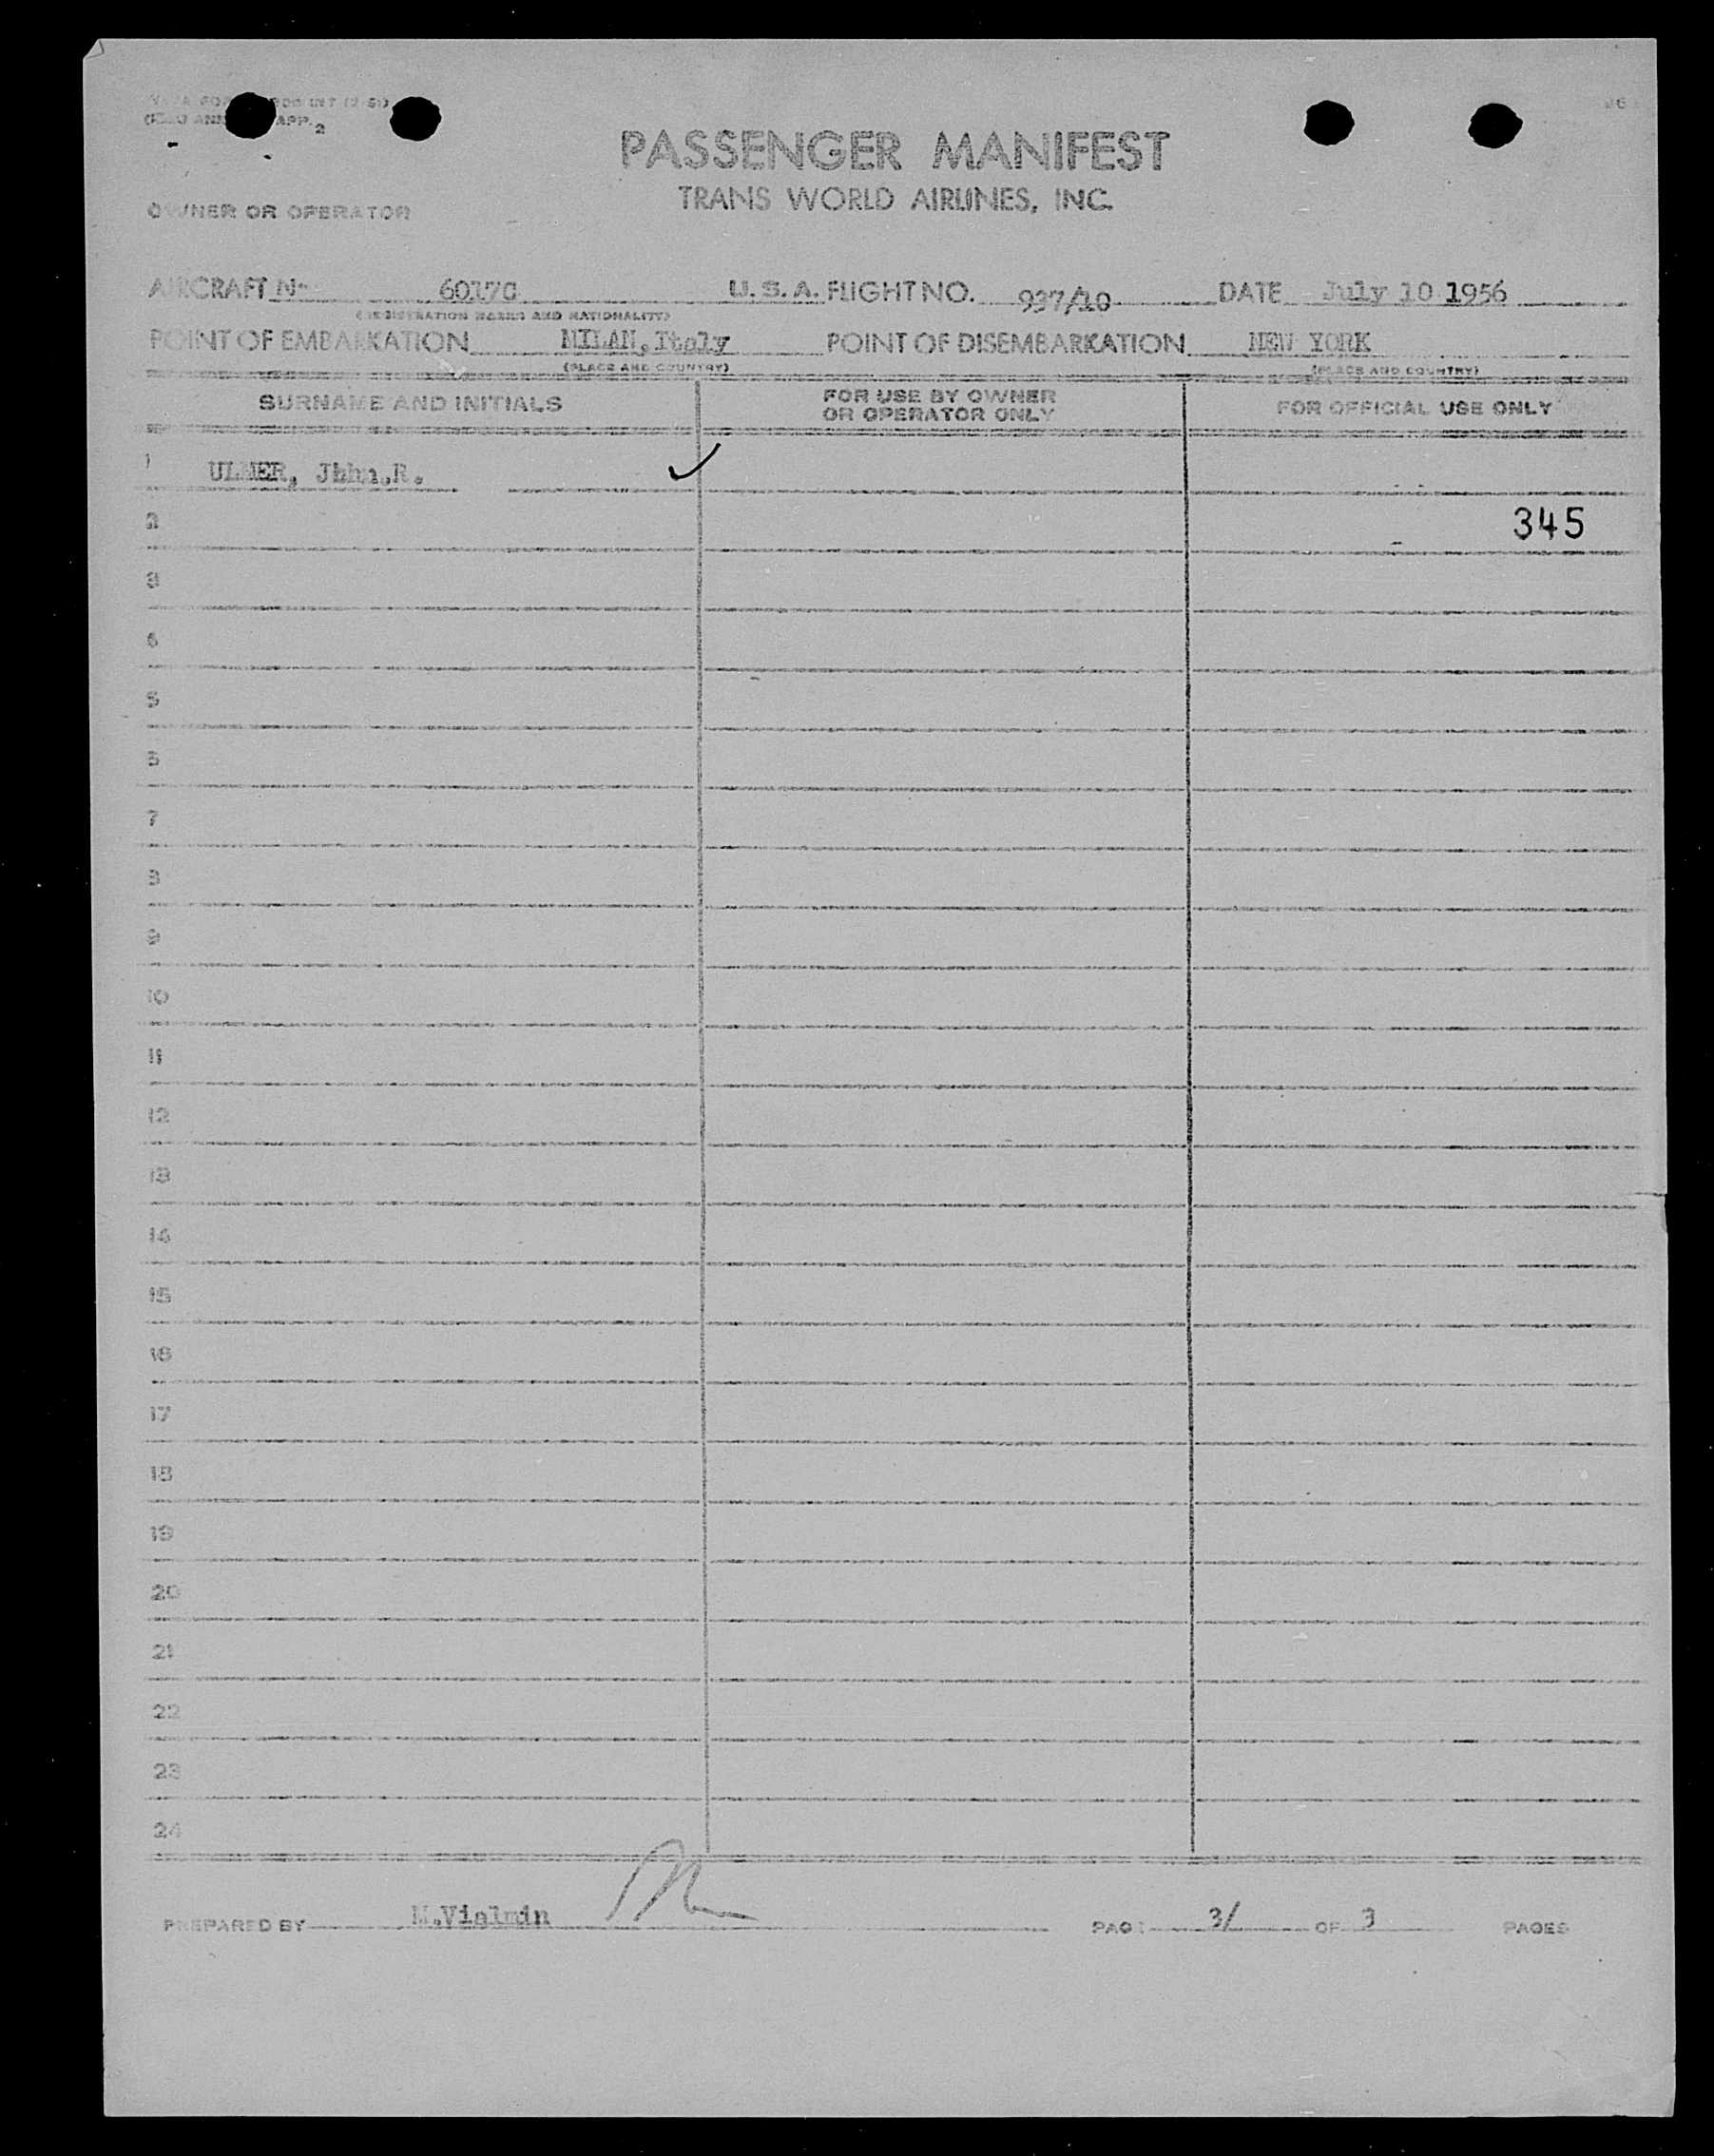 PASSENGER MANIFEST
TRANS WORLD AIRLINES, INC.
OWNER OR OPERATOR
AIRCRAFT N- 6017C U. S. A. FLIGHT NO. 937/10 DATE July 10 1956
(REGISTRATION MARKS AND NATIONALITY)
POINT OF EMBARKATION MILAN, Italy POINT OF DISEMBARKATION NEW YORK
(PLACE AND COUNTRY) (PLACE AND COUNTRY)
SURNAME AND INITIALS FOR USE BY OWNER OR OPERATOR ONLY FOR OFFICIAL USE ONLY
1 ULMER, Jhhn.R. ✓
2 345
3
4
5
6
7
8
9
10
11
12
13
14
15
16
17
18
19
20
21
22
23
24
PREPARED BY M.Vialmin PAGE 3/ OF 3 PAGES